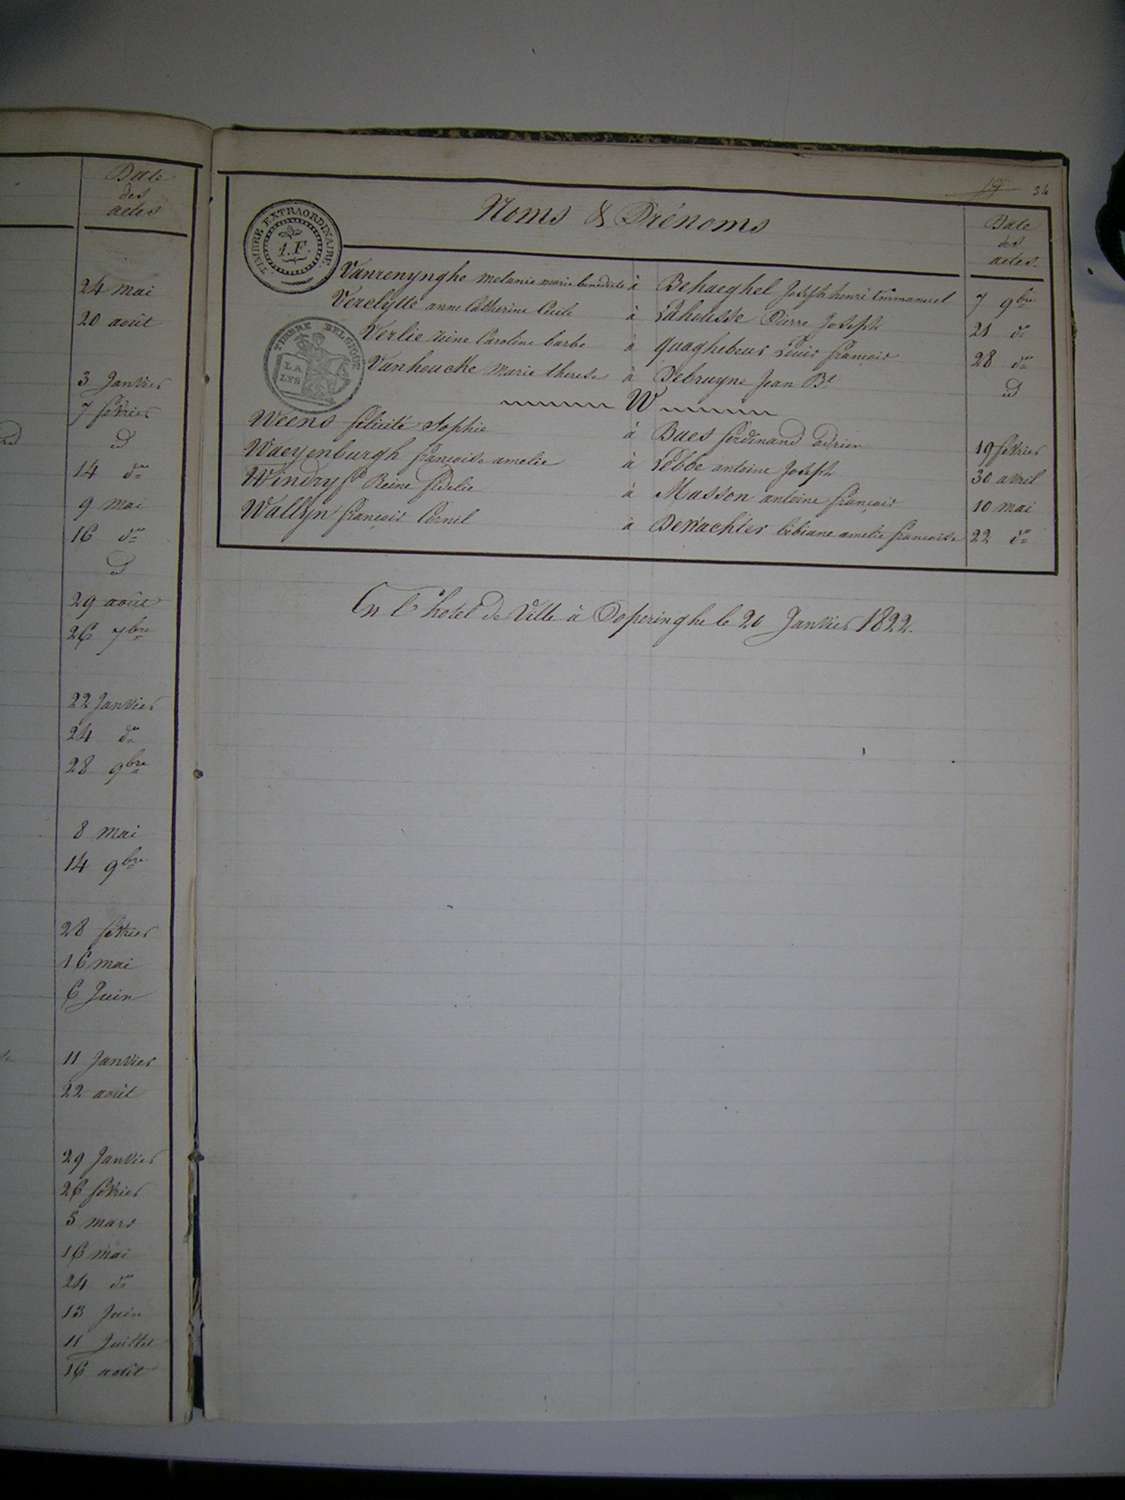 Date
des
actes
24 mai
20 août
3 Janvier
7 février
d
14 do
9 mai
16 do
d
29 août
26 7bre
22 Janvier
24 do
28 9bre
8 mai
14 9bre
28 février
16 mai
6 Juin
11 Janvier
22 août
29 Janvier
26 février
5 mars
16 mai
24 do
13 Juin
11 Juillet
16 août
19 34
TIMBRE EXTRAORDINAIRE
1.F.
Noms & Prénoms
Date
des
actes.
Vanrenynghe melanie marie benedicte à Behaeghel Joseph henri Emmanuel 7 9bre
Verclytte anne Catherine Cecile à Lahousse Pierre Joseph 21 do
TIMBRE BELGIQUE
Verlie reine Caroline barbe à quaghebeur Louis françois 28 do
Vanheucke Marie therese à Debruyne Jean Bte d
W
Weens félicité Sophie à Baes ferdinand adrien 19 février
Waeyenburgh françoise amelie à Lebbe antoine Joseph 30 avril
Reine fidelie à Masson antoine françois 10 mai
Wallyn françois Cornil à Dewachter bibiane amelie françoise 22 do
En l'hotel de Ville à Poperinghe le 20 Janvier 1822.